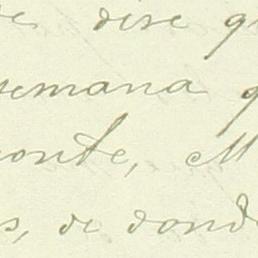 dise
semana
onte, M
s, de donde